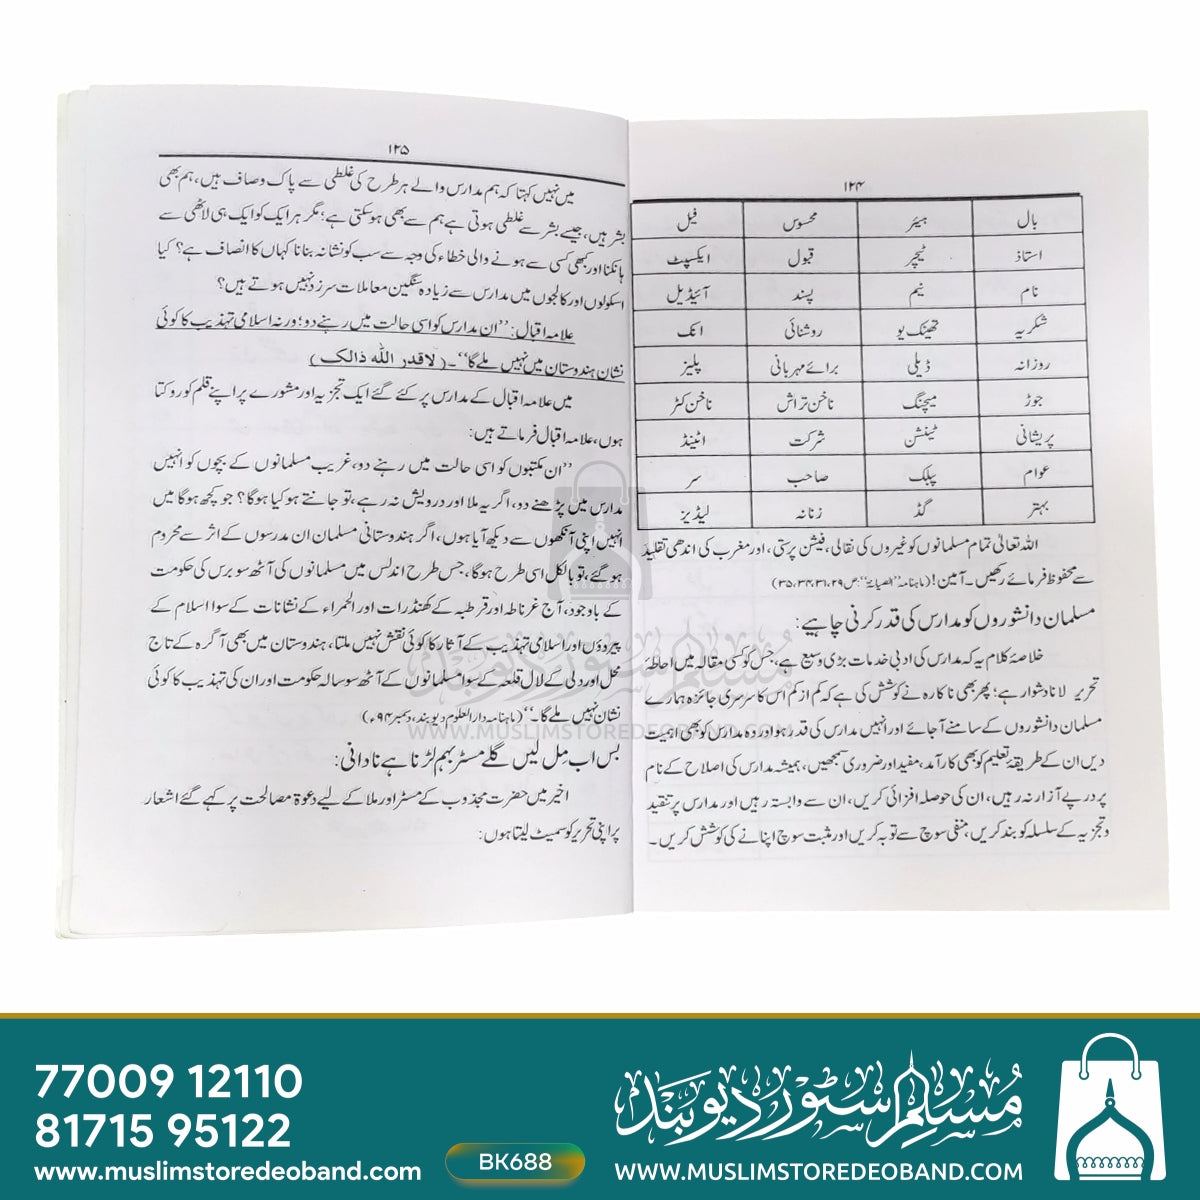 ۱۲۴
بال ہیئر محسوس فیل
استاذ ٹیچر قبول ایکسپٹ
نام نیم پسند آئیڈیل
شکریہ تھینک یو روشنائی انک
روزانہ ڈیلی برائے مہربانی پلیز
جوڑ میچنگ ناخن تراش ناخن کٹر
پریشانی ٹینشن شرکت اٹینڈ
عوام پبلک صاحب سر
بہتر گڈ زنانہ لیڈیز
اللہ تعالیٰ تمام مسلمانوں کو غیروں کی نقالی، فیشن پرستی، اور مغرب کی اندھی تقلید
سے محفوظ فرمائے رکھیں۔ آمین! (ماہنامہ ”الصیانۃ“: ص ۲۹، ۳۱، ۳۴، ۳۵)
مسلمان دانشوروں کو مدارس کی قدر کرنی چاہیے:
خلاصۂ کلام یہ کہ مدارس کی ادبی خدمات بڑی وسیع ہے، جس کو کسی مقالہ میں احاطۂ
تحریر لانا دشوار ہے؛ پھر بھی ناکارہ نے کوشش کی ہے کہ کم از کم اس کا سرسری جائزہ ہمارے
مسلمان دانشوروں کے سامنے آجائے اور انہیں مدارس کی قدر ہو اور وہ مدارس کو بھی اہمیت
دیں ان کے طریقۂ تعلیم کو بھی کارآمد، مفید اور ضروری سمجھیں، ہمیشہ مدارس کی اصلاح کے نام
پر درپے آزار نہ رہیں، ان کی حوصلہ افزائی کریں، ان سے وابستہ رہیں اور مدارس پر تنقید
و تجزیہ کے سلسلہ کو بند کریں، منفی سوچ سے توبہ کریں اور مثبت سوچ اپنانے کی کوشش کریں۔
۱۲۵
میں نہیں کہتا کہ ہم مدارس والے ہر طرح کی غلطی سے پاک وصاف ہیں، ہم بھی
بشر ہیں، جیسے بشر سے غلطی ہوتی ہے ہم سے بھی ہوسکتی ہے؛ مگر ہر ایک کو ایک ہی لاٹھی سے
ہانکنا اور کبھی کسی سے ہونے والی خطاء کی وجہ سے سب کو نشانہ بنانا کہاں کا انصاف ہے؟ کیا
اسکولوں اور کالجوں میں مدارس سے زیادہ سنگین معاملات سرزد نہیں ہوتے ہیں؟
علامہ اقبال: ”ان مدارس کو اسی حالت میں رہنے دو؛ ورنہ اسلامی تہذیب کا کوئی
نشان ہندوستان میں نہیں ملے گا“۔ (لا قدر اللہ ذالک)
میں علامہ اقبال کے مدارس پر کئے گئے ایک تجزیہ اور مشورے پر اپنے قلم کو روکتا
ہوں، علامہ اقبال فرماتے ہیں:
”ان مکتبوں کو اسی حالت میں رہنے دو، غریب مسلمانوں کے بچوں کو انہیں
مدارس میں پڑھنے دو، اگر یہ ملا اور درویش نہ رہے، تو جانتے ہو کیا ہوگا؟ جو کچھ ہوگا میں
انہیں اپنی آنکھوں سے دیکھ آیا ہوں، اگر ہندوستانی مسلمان ان مدرسوں کے اثر سے محروم
ہوگئے، تو بالکل اسی طرح ہوگا، جس طرح اندلس میں مسلمانوں کی آٹھ سو برس کی حکومت
کے باوجود، آج غرناطہ اور قرطبہ کے کھنڈرات اور الحمراء کے نشانات کے سوا اسلام کے
پیروؤں اور اسلامی تہذیب کے آثار کا کوئی نقش نہیں ملتا، ہندوستان میں بھی آگرہ کے تاج
محل اور دلی کے لال قلعہ کے سوا مسلمانوں کے آٹھ سو سالہ حکومت اور ان کی تہذیب کا کوئی
نشان نہیں ملے گا۔“ (ماہنامہ دارالعلوم دیوبند، دسمبر ۹۴ء)
بس اب مِل لیں گلے مسٹر بہم لڑنا ہے نادانی:
اخیر میں حضرت مجذوب کے مسٹر اور ملا کے لیے دعوۃ مصالحت پر کہے گئے اشعار
پر اپنی تحریر کو سمیٹ لیتا ہوں:
مسلم سٹور دیوبند
WWW.MUSLIMSTOREDEOBAND.COM
77009 12110
81715 95122
www.muslimstoredeoband.com
BK688
مسلم سٹور دیوبند
WWW.MUSLIMSTOREDEOBAND.COM